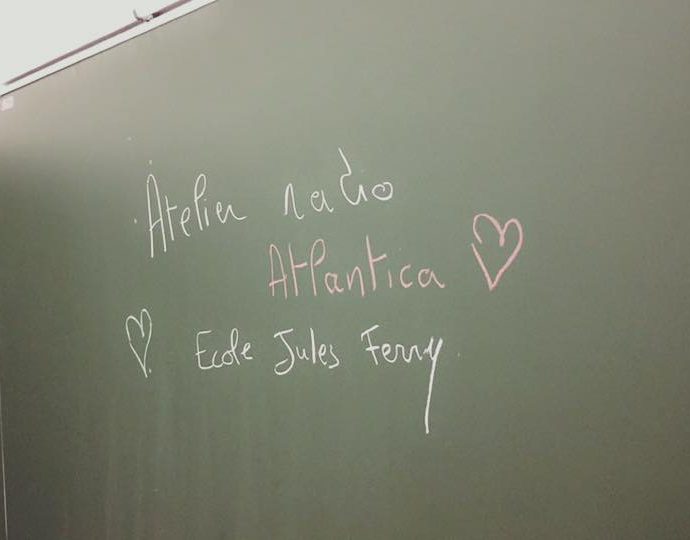 Atelier radio
Atlantica
Ecole Jules Ferry